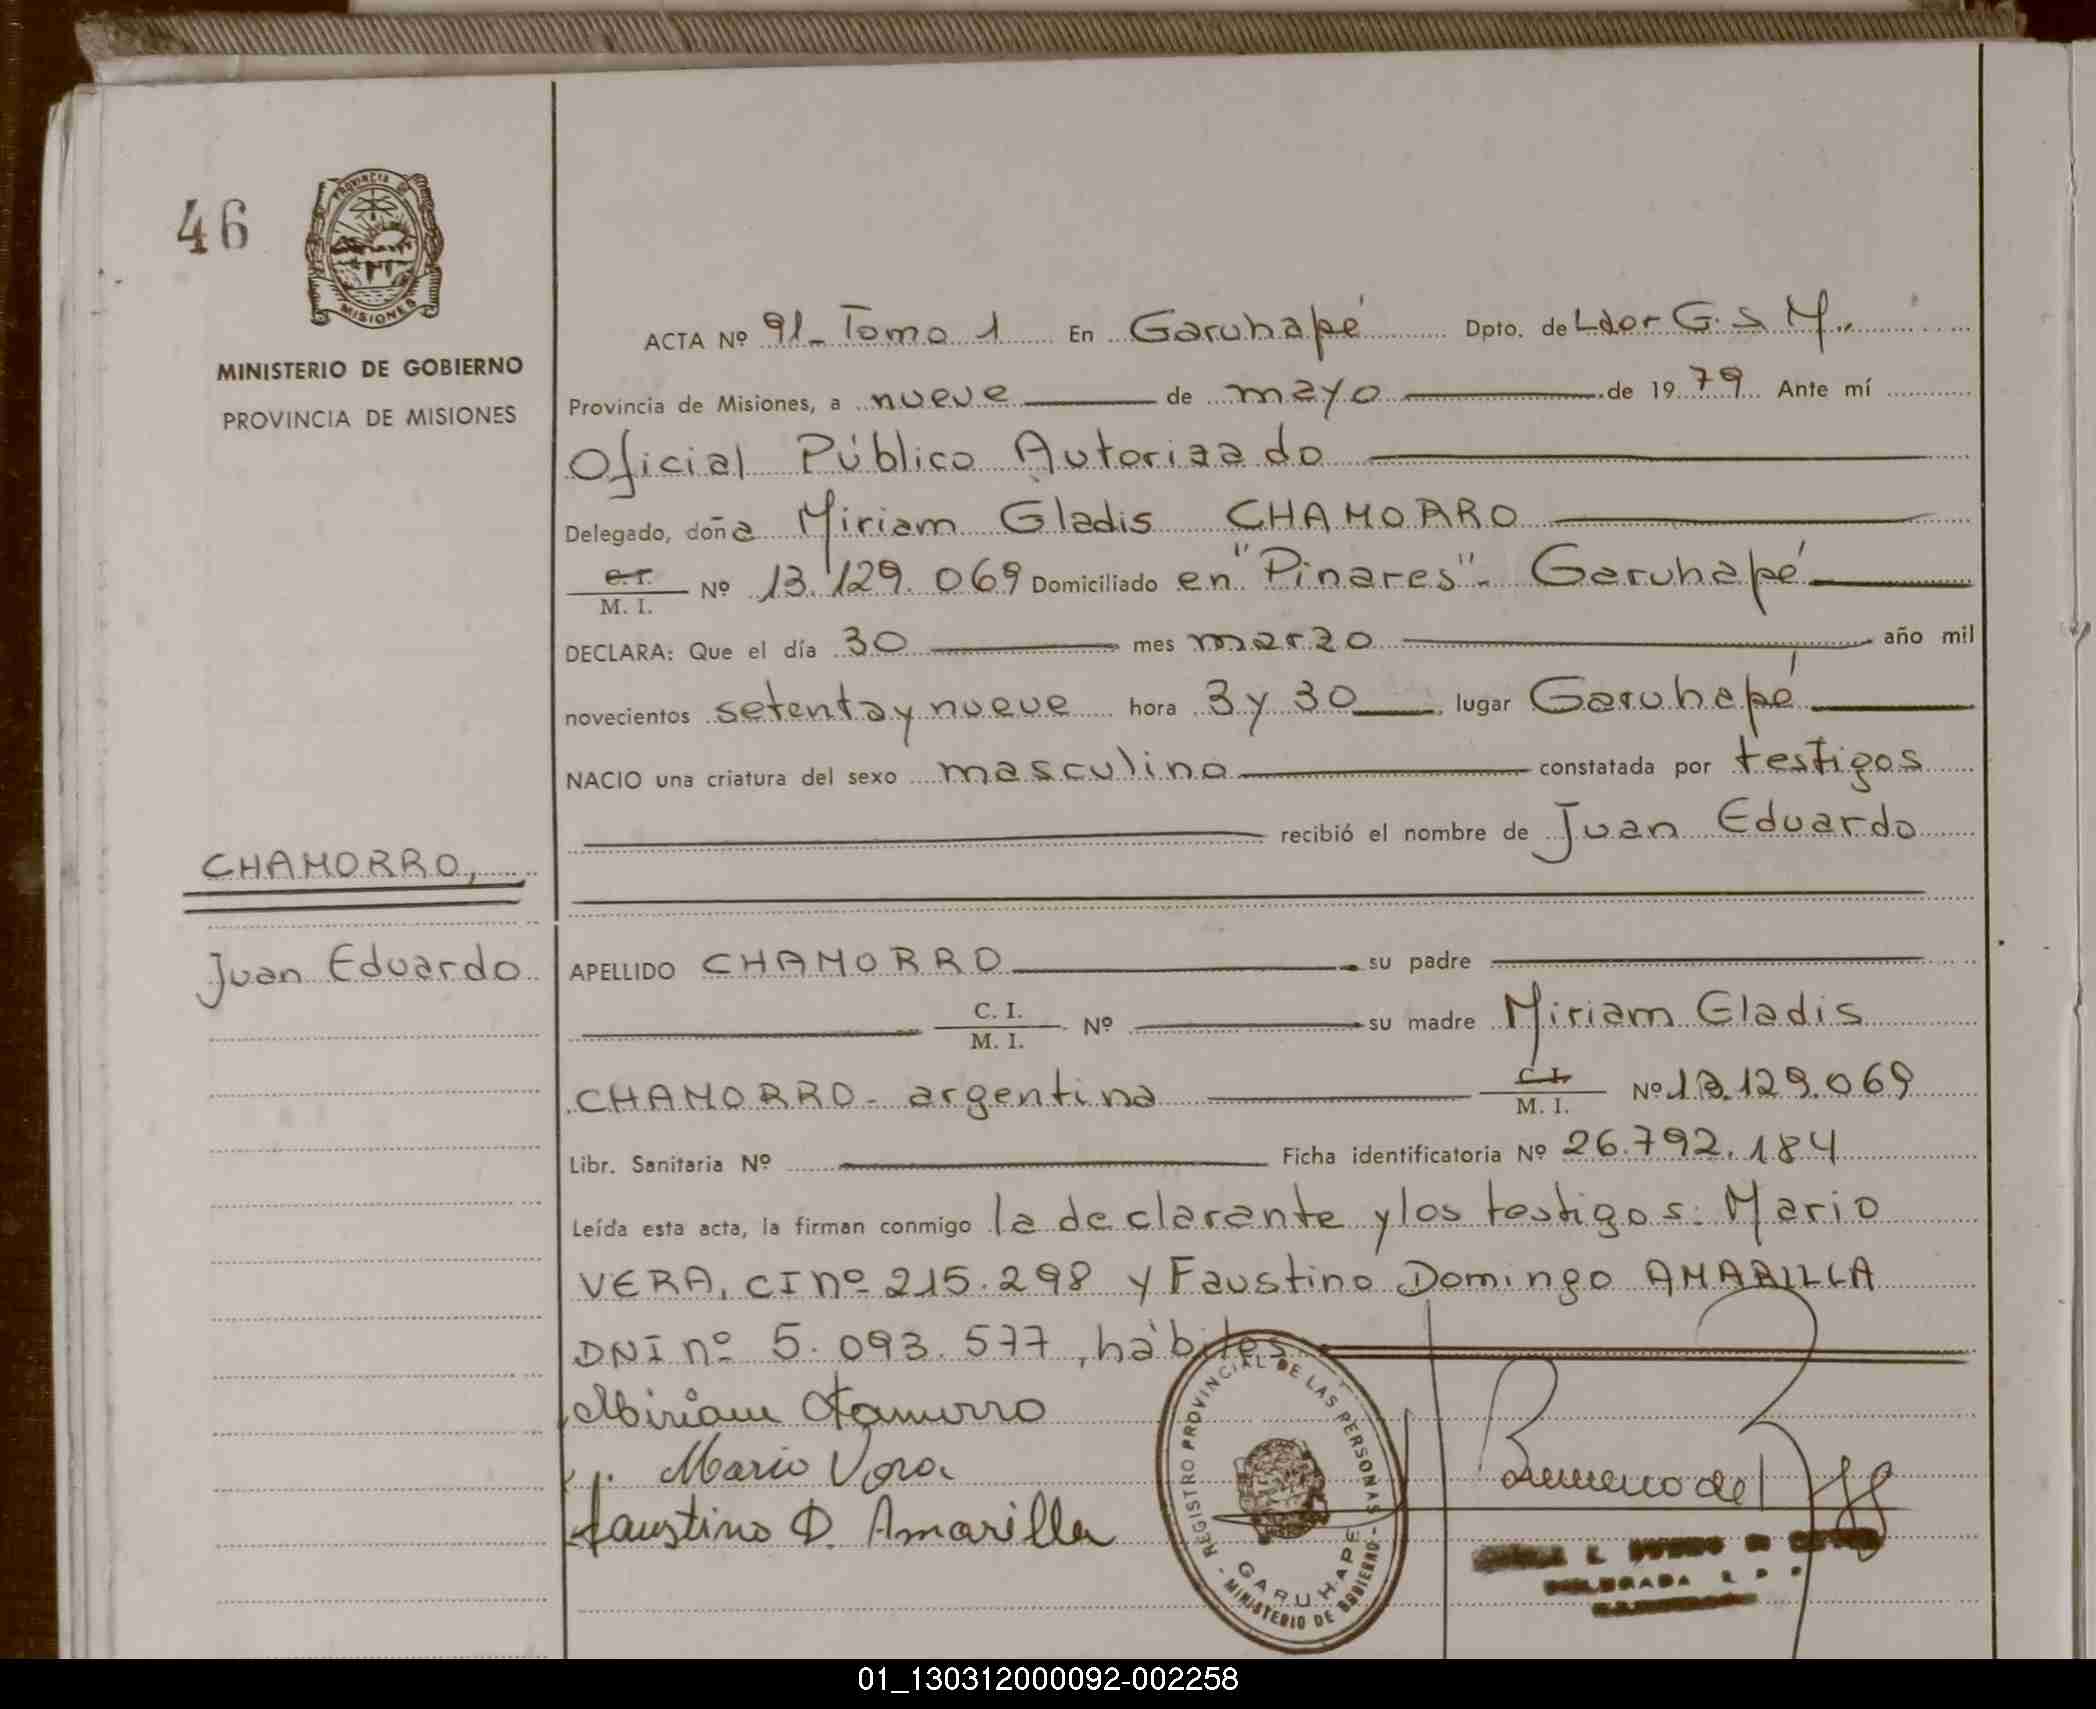 46
PROVINCIA DE
MISIONES
MINISTERIO DE GOBIERNO
PROVINCIA DE MISIONES
ACTA Nº 91_ Tomo 1 En Garuhapé Dpto. de Ldor G. S M.
Provincia de Misiones, a nueve de mayo de 1979 Ante mí
Oficial Público Autorizado
Delegado, doña Miriam Gladis CHAMORRO
C.I. / M. I. Nº 13.129.069 Domiciliado en "Pinares"- Garuhapé
DECLARA: Que el día 30 mes marzo año mil
novecientos setenta y nueve hora 3 y 30 lugar Garuhapé
NACIO una criatura del sexo masculino constatada por testigos
recibió el nombre de Juan Eduardo
CHAMORRO,
Juan Eduardo
APELLIDO CHAMORRO su padre
C. I. / M. I. Nº su madre Miriam Gladis
CHAMORRO- argentina C. I. / M. I. Nº 13.129.069
Libr. Sanitaria Nº Ficha identificatoria Nº 26.792.184
Leída esta acta, la firman conmigo la declarante y los testigos: Mario
VERA, CI nº 215.298 y Faustino Domingo AMARILLA
DNI nº 5.093.577, hábiles
Miriam Chamorro
Mario Vera
Faustino D. Amarilla
REGISTRO PROVINCIAL DE LAS PERSONAS
GARUHAPE
- MINISTERIO DE GOBIERNO -
01_130312000092-002258